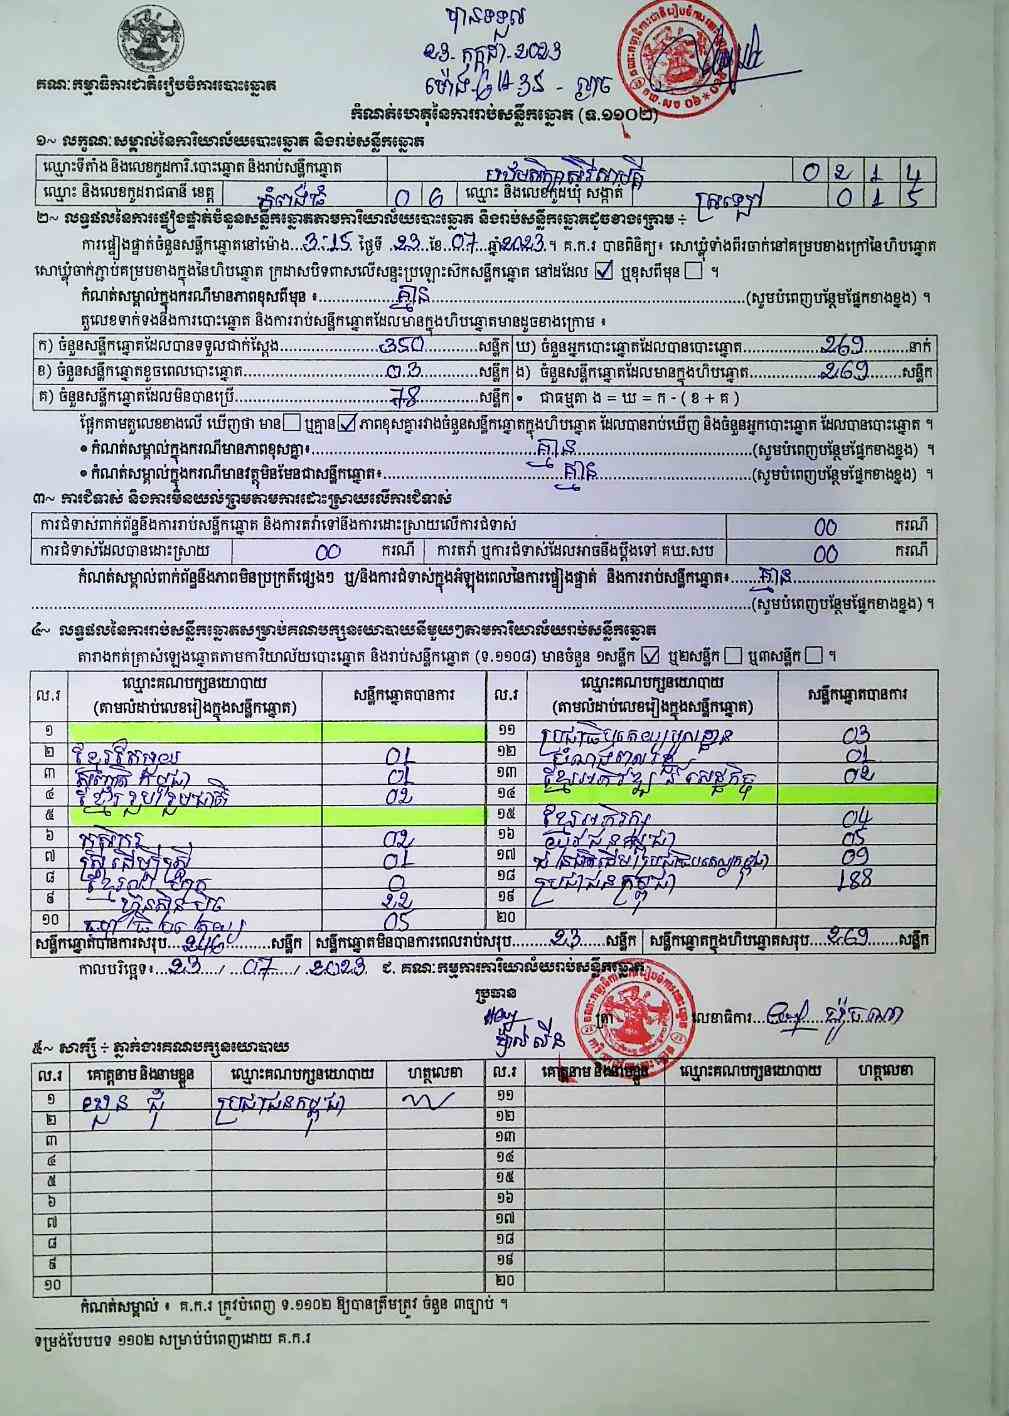 បានទទួល
២៣-កក្កដា-2023
គណៈកម្មាធិការជាតិរៀបចំការបោះឆ្នោត
កំណត់ហេតុនៃការរាប់សន្លឹកឆ្នោត (ទ.១១០២)
១~ លក្ខណៈសម្គាល់នៃការិយាល័យបោះឆ្នោត និងរាប់សន្លឹកឆ្នោត
ឈ្មោះទីតាំង និងលេខកូដការិ.បោះឆ្នោត និងរាប់សន្លឹកឆ្នោត 0 2 1 4
ឈ្មោះ និងលេខកូដរាជធានី ខេត្ត កំពង់ធំ 0 6 ឈ្មោះ និងលេខកូដឃុំ សង្កាត់ ត្រឡៅ 0 1 5
២~ លទ្ធផលនៃការផ្ទៀងផ្ទាត់ចំនួនសន្លឹកឆ្នោតតាមការិយាល័យបោះឆ្នោត និងរាប់សន្លឹកឆ្នោតដូចខាងក្រោម ÷
ការផ្ទៀងផ្ទាត់ចំនួនសន្លឹកឆ្នោតនៅម៉ោង 3:15 ថ្ងៃទី 23 ខែ 07 ឆ្នាំ 2023 ។ គ.ក.រ បានពិនិត្យ៖ សោឃ្លុំទាំងពីរចាក់នៅគម្របខាងក្រៅនៃហិបឆ្នោត
សោឃ្លុំចាក់ភ្ជាប់គម្របខាងក្នុងនៃហិបឆ្នោត ក្រដាសបិទពាសលើសន្ទះប្រឡោះស៊កសន្លឹកឆ្នោត នៅដដែល ☑ ឬខុសពីមុន ☐ ។
កំណត់សម្គាល់ក្នុងករណីមានភាពខុសពីមុន ៖ គ្មាន (សូមបំពេញបន្ថែមផ្នែកខាងខ្នង) ។
តួលេខទាក់ទងនឹងការបោះឆ្នោត និងការរាប់សន្លឹកឆ្នោតដែលមានក្នុងហិបឆ្នោតមានដូចខាងក្រោម ៖
ក) ចំនួនសន្លឹកឆ្នោតដែលបានទទួលជាក់ស្តែង 350 សន្លឹក ឃ) ចំនួនអ្នកបោះឆ្នោតដែលបានបោះឆ្នោត 269 នាក់
ខ) ចំនួនសន្លឹកឆ្នោតខូចពេលបោះឆ្នោត 03 សន្លឹក ង) ចំនួនសន្លឹកឆ្នោតដែលមានក្នុងហិបឆ្នោត 269 សន្លឹក
គ) ចំនួនសន្លឹកឆ្នោតដែលមិនបានប្រើ 78 សន្លឹក • ជាធម្មតា ង = ឃ = ក - ( ខ + គ )
ផ្អែកតាមតួលេខខាងលើ ឃើញថា មាន ☐ ឬគ្មាន ☑ ភាពខុសគ្នារវាងចំនួនសន្លឹកឆ្នោតក្នុងហិបឆ្នោត ដែលបានរាប់ឃើញ និងចំនួនអ្នកបោះឆ្នោត ដែលបានបោះឆ្នោត ។
• កំណត់សម្គាល់ក្នុងករណីមានភាពខុសគ្នា៖ គ្មាន (សូមបំពេញបន្ថែមផ្នែកខាងខ្នង) ។
• កំណត់សម្គាល់ក្នុងករណីមានវត្ថុមិនមែនជាសន្លឹកឆ្នោត៖ គ្មាន (សូមបំពេញបន្ថែមផ្នែកខាងខ្នង) ។
៣~ ការជំទាស់ និងការមិនយល់ព្រមតាមការដោះស្រាយលើការជំទាស់
ការជំទាស់ពាក់ព័ន្ធនឹងការរាប់សន្លឹកឆ្នោត និងការតវ៉ាទៅនឹងការដោះស្រាយលើការជំទាស់ 00 ករណី
ការជំទាស់ដែលបានដោះស្រាយ 00 ករណី ការតវ៉ា ឬការជំទាស់ដែលអាចនឹងប្តឹងទៅ គឃ.សប 00 ករណី
កំណត់សម្គាល់ពាក់ព័ន្ធនឹងភាពមិនប្រក្រតីផ្សេងៗ ឬ/និងការជំទាស់ក្នុងអំឡុងពេលនៃការផ្ទៀងផ្ទាត់ និងការរាប់សន្លឹកឆ្នោត៖ គ្មាន
(សូមបំពេញបន្ថែមផ្នែកខាងខ្នង) ។
៤~ លទ្ធផលនៃការរាប់សន្លឹកឆ្នោតសម្រាប់គណបក្សនយោបាយនីមួយៗតាមការិយាល័យរាប់សន្លឹកឆ្នោត
តារាងកត់ត្រាសំឡេងឆ្នោតតាមការិយាល័យបោះឆ្នោត និងរាប់សន្លឹកឆ្នោត (ទ.១១០៨) មានចំនួន ១សន្លឹក ☑ ឬ២សន្លឹក ☐ ឬ៣សន្លឹក ☐ ។
ល.រ ឈ្មោះគណបក្សនយោបាយ (តាមលំដាប់លេខរៀងក្នុងសន្លឹកឆ្នោត) សន្លឹកឆ្នោតបានការ ល.រ ឈ្មោះគណបក្សនយោបាយ (តាមលំដាប់លេខរៀងក្នុងសន្លឹកឆ្នោត) សន្លឹកឆ្នោតបានការ
១ ១១ ប្រជាធិបតេយ្យមូលដ្ឋាន 03
២ ខ្មែរតែមួយ 01 ១២ 01
៣ សញ្ជាតិកម្ពុជា 01 ១៣ ខ្មែរអភិវឌ្ឍន៍សេដ្ឋកិច្ច 02
៤ ខ្មែររួបរួមជាតិ 02 ១៤
៥ ១៥ ខ្មែរអភិរក្ស 04
៦ 02 ១៦ យុវជនកម្ពុជា 05
៧ ស្ត្រីដើម្បីស្ត្រី 01 ១៧ 09
៨ 0 ១៨ ប្រជាជនកម្ពុជា 188
៩ ហ្វ៊ុនស៊ិនប៉ិច 22 ១៩
១០ 05 ២០
សន្លឹកឆ្នោតបានការសរុប 246 សន្លឹក សន្លឹកឆ្នោតមិនបានការពេលរាប់សរុប 23 សន្លឹក សន្លឹកឆ្នោតក្នុងហិបឆ្នោតសរុប 269 សន្លឹក
កាលបរិច្ឆេទ៖ 23 / 07 / 2023 ជ. គណៈកម្មការការិយាល័យរាប់សន្លឹកឆ្នោត
ប្រធាន
ត្រា លេខាធិការ
៥~ សាក្សី ÷ ភ្នាក់ងារគណបក្សនយោបាយ
ល.រ គោត្តនាម និងនាមខ្លួន ឈ្មោះគណបក្សនយោបាយ ហត្ថលេខា ល.រ គោត្តនាម និងនាមខ្លួន ឈ្មោះគណបក្សនយោបាយ ហត្ថលេខា
១ ប្រជាជនកម្ពុជា ១១
២ ១២
៣ ១៣
៤ ១៤
៥ ១៥
៦ ១៦
៧ ១៧
៨ ១៨
៩ ១៩
១០ ២០
កំណត់សម្គាល់ ៖ គ.ក.រ ត្រូវបំពេញ ទ.១១០២ ឱ្យបានត្រឹមត្រូវ ចំនួន ៣ច្បាប់ ។
ទម្រង់បែបបទ ១១០២ សម្រាប់បំពេញដោយ គ.ក.រ